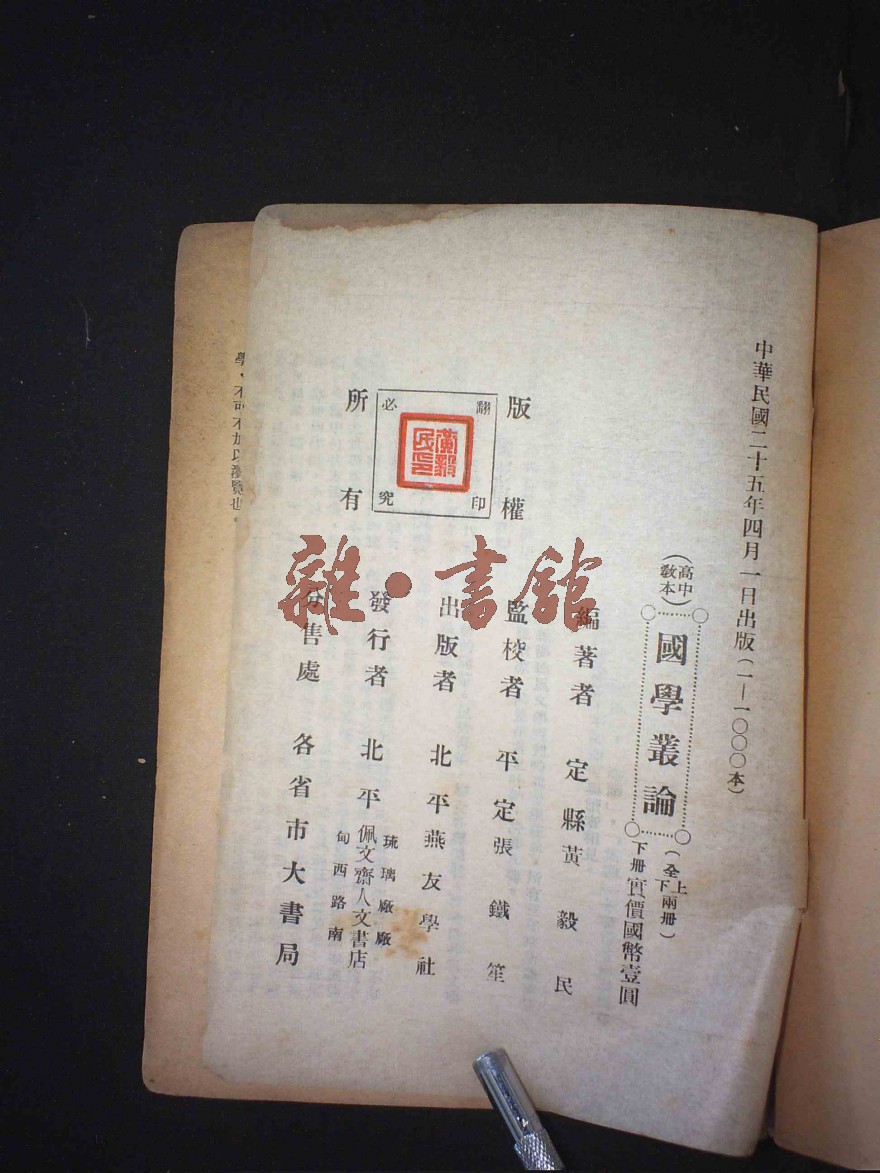 中華民國二十五年四月一日出版(一—一〇〇〇本)
(高中教本)
國學叢論
(全上下兩冊)
下冊實價國幣壹圓
版權
所有
翻印
必究
黃毅民印
編著者 定縣黃毅民
監校者 平定張鐵笙
出版者 北平燕友學社
發行者 北平
琉璃廠廠
佩文齋人文書店
甸西路南
分售處 各省市大書局
學,不可不加以瀏覽也。
雜·書館